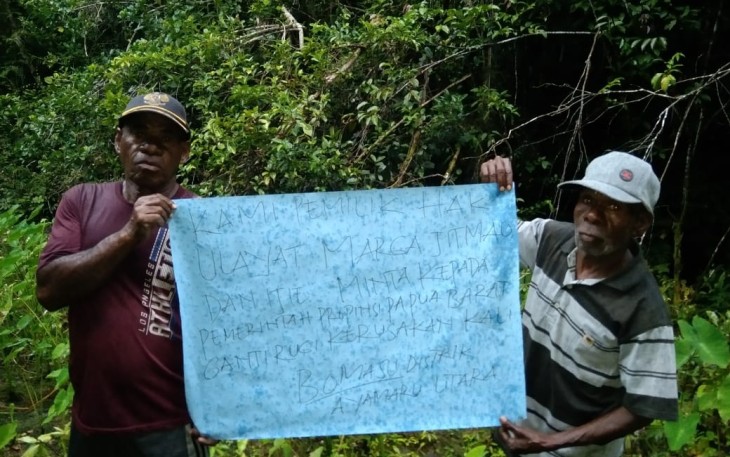 KAMI PEMILIK HAK
ULAYAT MARGA JITMAU
DAN ITEL MINTA KEPADA
PEMERINTAH PROPINSI PAPUA BARAT
GANTI RUGI KERUSAKAN KALI
BOMATU DISTRIK
AYAMARU UTARA
LOS ANGELES
ATHLETIC